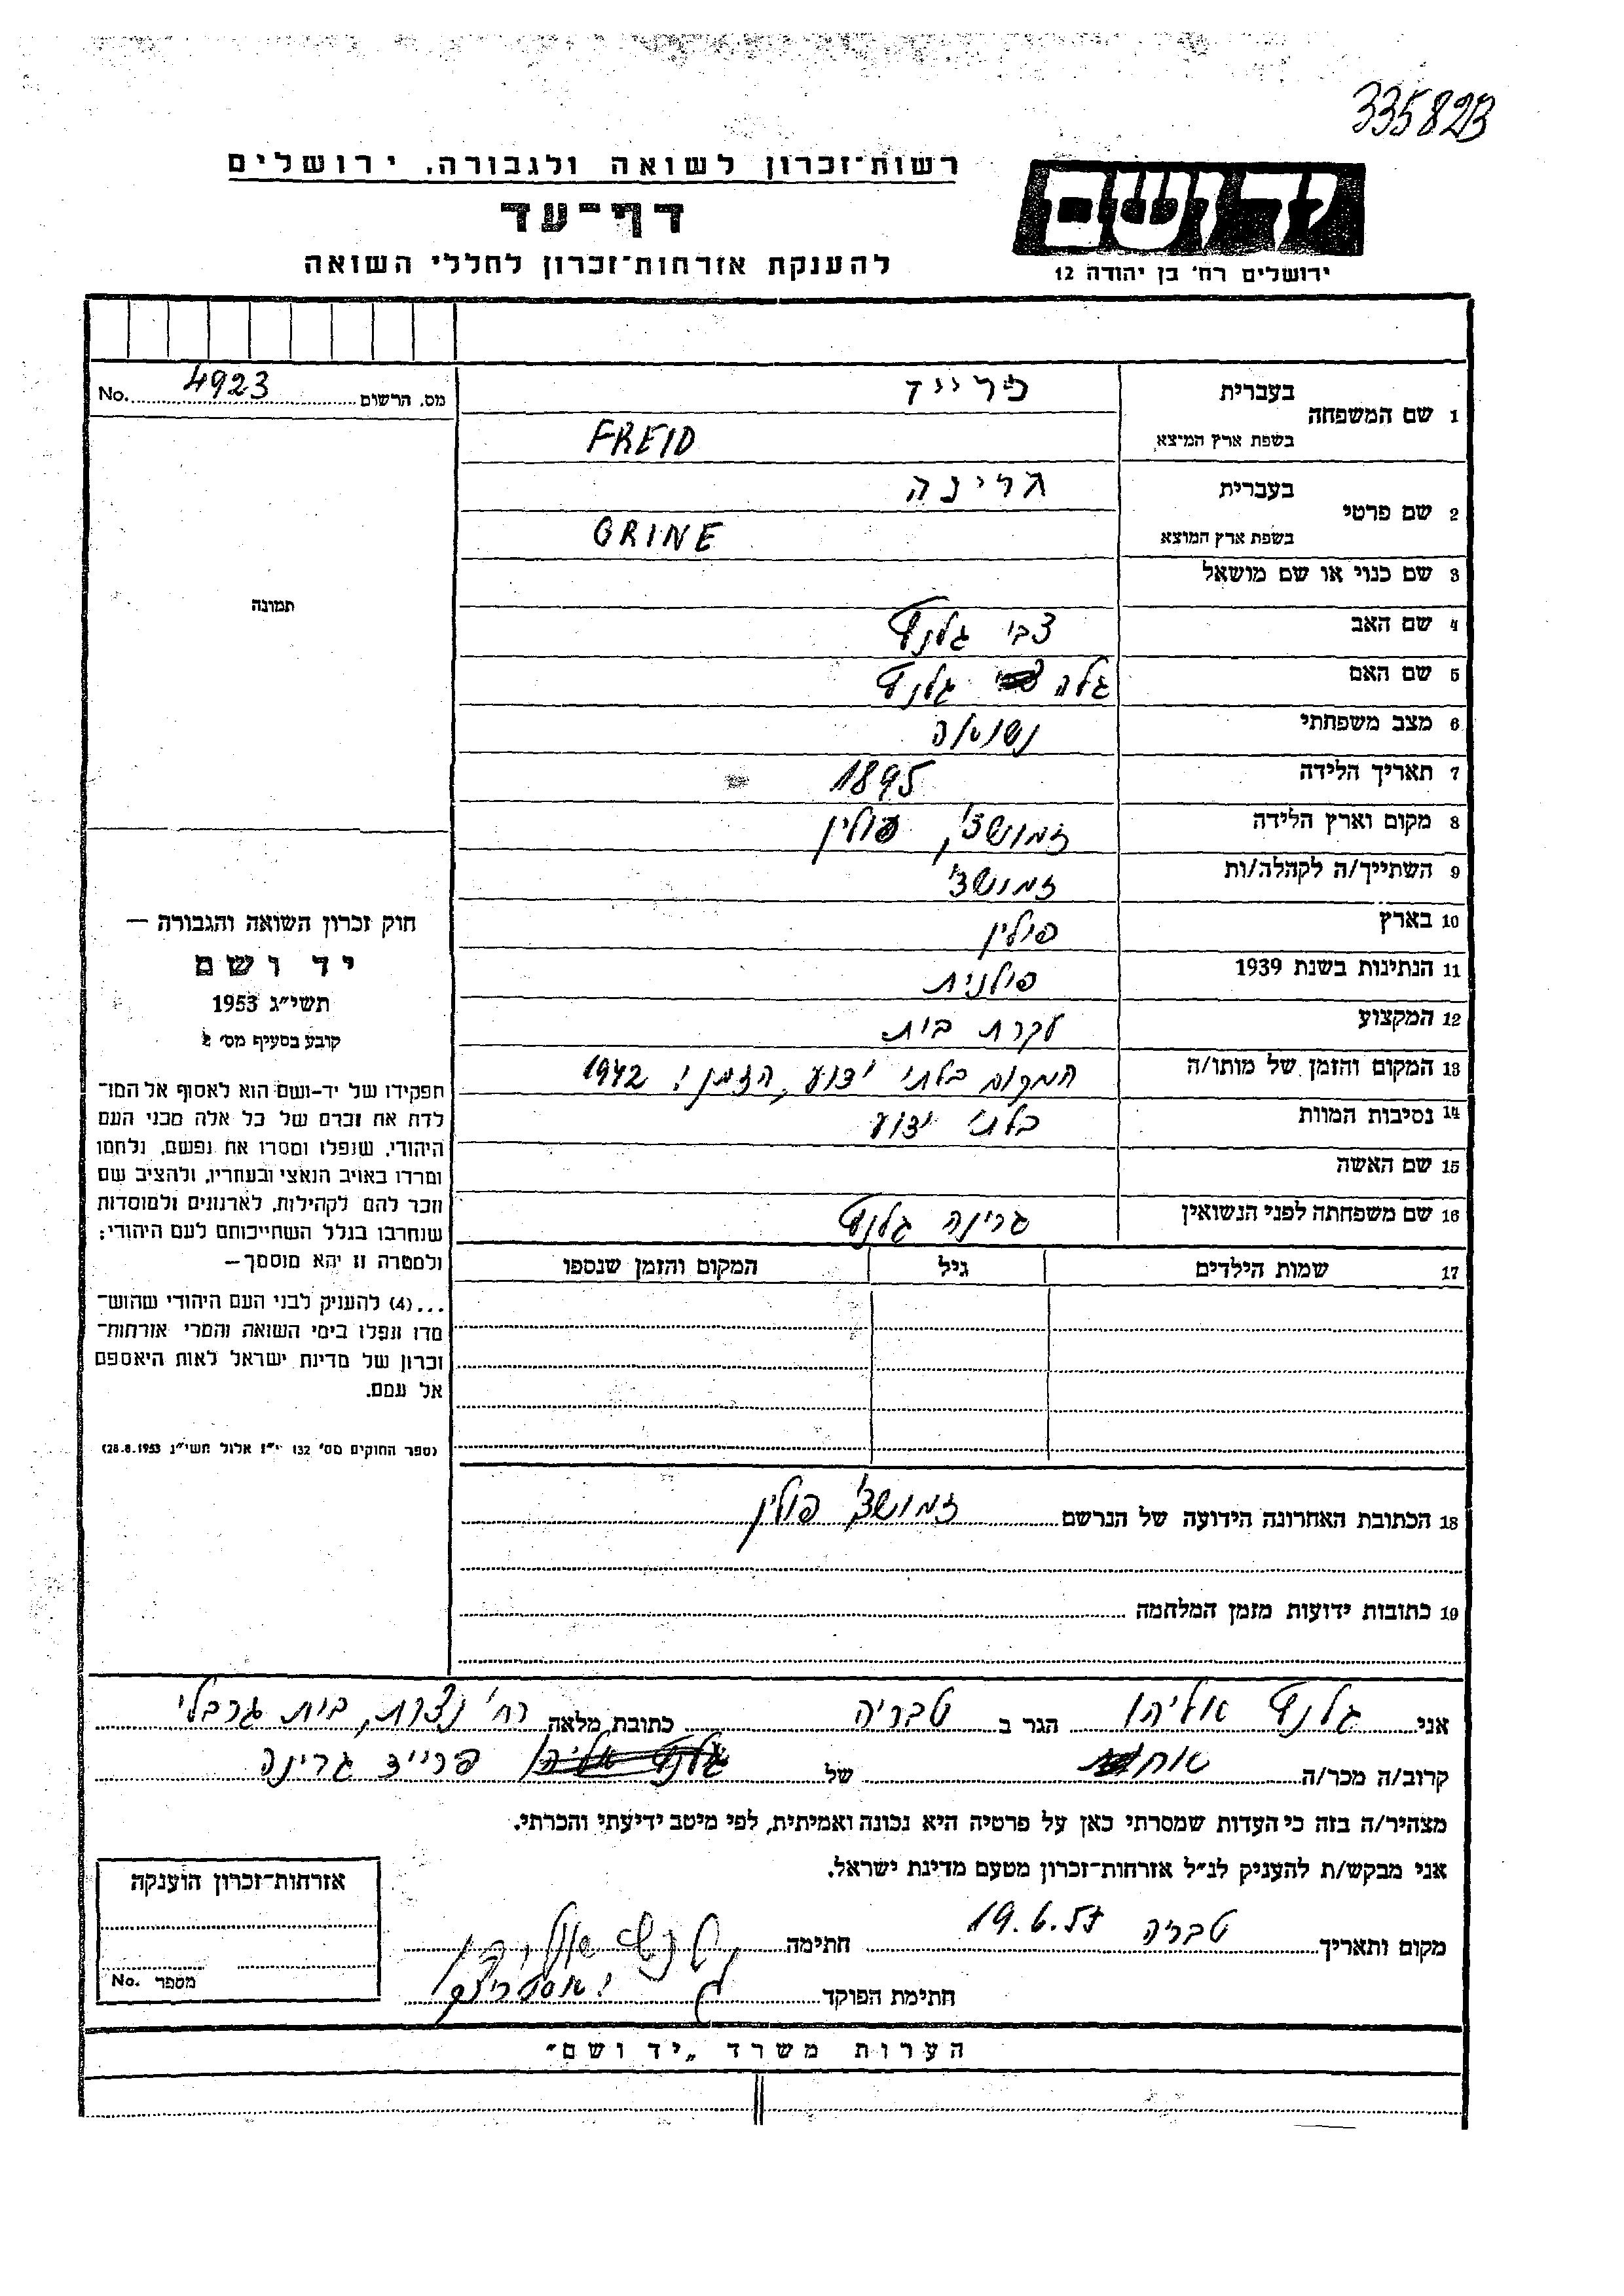 335823
רשות־זכרון לשואה ולגבורה, ירושלים
יד ושם
דף־עד
להענקת אזרחות־זכרון לחללי השואה
ירושלים רח' בן יהודה 12
מס. הרשום 4923 No.
1 שם המשפחה בעברית פרייד
בשפת ארץ המוצא FREID
2 שם פרטי בעברית גרינה
בשפת ארץ המוצא GRINE
3 שם כנוי או שם מושאל
4 שם האב צבי גלנד
5 שם האם גלה גלנד
6 מצב משפחתי נשואה
7 תאריך הלידה 1895
8 מקום וארץ הלידה זמושצ', פולין
9 השתייך/ה לקהלה/ות זמושצ'
10 בארץ פולין
11 הנתינות בשנת 1939 פולנית
12 המקצוע עקרת בית
13 המקום והזמן של מותו/ה המקום בלתי ידוע, הזמן: 1942
14 נסיבות המוות בלתי ידוע
15 שם האשה
16 שם משפחתה לפני הנשואין גרינה גלנד
17 שמות הילדים גיל המקום והזמן שנספו
תמונה
חוק זכרון השואה והגבורה —
יד ושם
תשי״ג 1953
קובע בסעיף מס' 2
תפקידו של יד-ושם הוא לאסוף אל המו־
לדת את זכרם של כל אלה מבני העם
היהודי, שנפלו ומסרו את נפשם, נלחמו
ומרדו באויב הנאצי ובעוזריו, ולהציב שם
וזכר להם לקהילות, לארגונים ולמוסדות
שנחרבו בגלל השתייכותם לעם היהודי;
ולמטרה זו יהא מוסמך—
...(4) להעניק לבני העם היהודי שהוש־
מדו ונפלו בימי השואה והמרי אזרחות־
זכרון של מדינת ישראל לאות היאספם
אל עמם.
(ספר החוקים מס' 132 י״ז אלול תשי״ג 28.8.1953)
18 הכתובת האחרונה הידועה של הנרשם זמושצ' פולין
19 כתובות ידועות מזמן המלחמה
אני גלנד אליהו הגר ב טבריה כתובת מלאה רח' נצרת, בית גרבלי
קרוב/ה מכר/ה של פרייד גרינה
מצהיר/ה בזה כי העדות שמסרתי כאן על פרטיה היא נכונה ואמיתית, לפי מיטב ידיעתי והכרתי.
אני מבקש/ת להעניק לנ״ל אזרחות־זכרון מטעם מדינת ישראל.
מקום ותאריך טבריה 19.6.57 חתימה גלנד אליהו
חתימת הפוקד
אזרחות־זכרון הוענקה
מספר No.
הערות משרד „יד ושם״